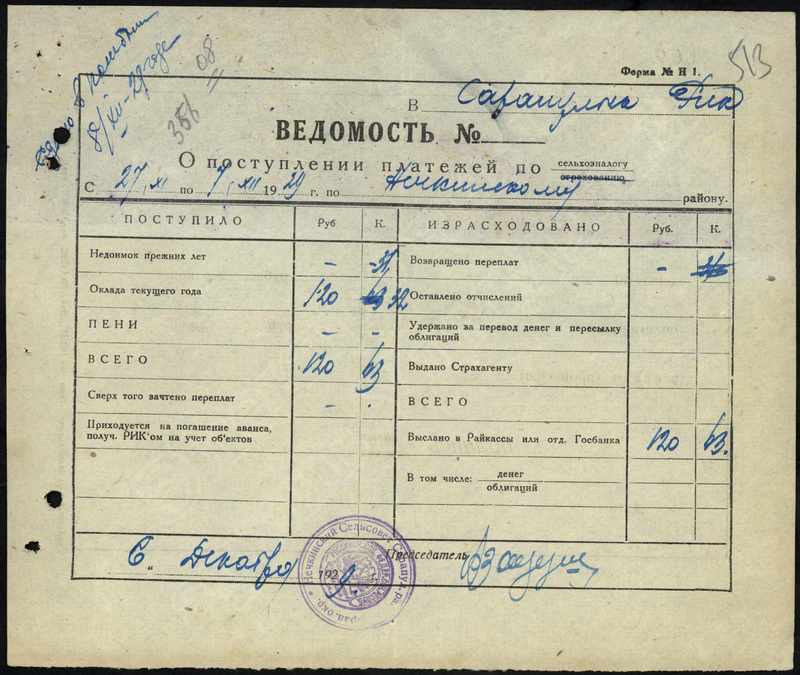 Форма № Н 1.
513
08
358
8/XII-29 года
В Сарапульск. Рик
ВЕДОМОСТЬ №
О поступлении платежей по сельхозналогу
страхованию,
С 27/XI по 7/XII 1929 г. по Нечкинскому району.
ПОСТУПИЛО Руб К. ИЗРАСХОДОВАНО Руб. К.
Недоимок прежних лет - -31, Возвращено переплат -
Оклада текущего года 120 63 32 Оставлено отчислений
ПЕНИ - - Удержано за перевод денег и пересылку
облигаций
ВСЕГО 120 63 Выдано Страхагенту
Сверх того зачтено переплат - . ВСЕГО
Приходуется на погашение аванса,
получ. РИК'ом на учет об'ектов
Выслано в Райкассы или отд. Госбанка 120 63.
В том числе: денег
облигаций
6. Декабря 1929 Председатель
Нечкинский Сельсовет Сарапул. р-на